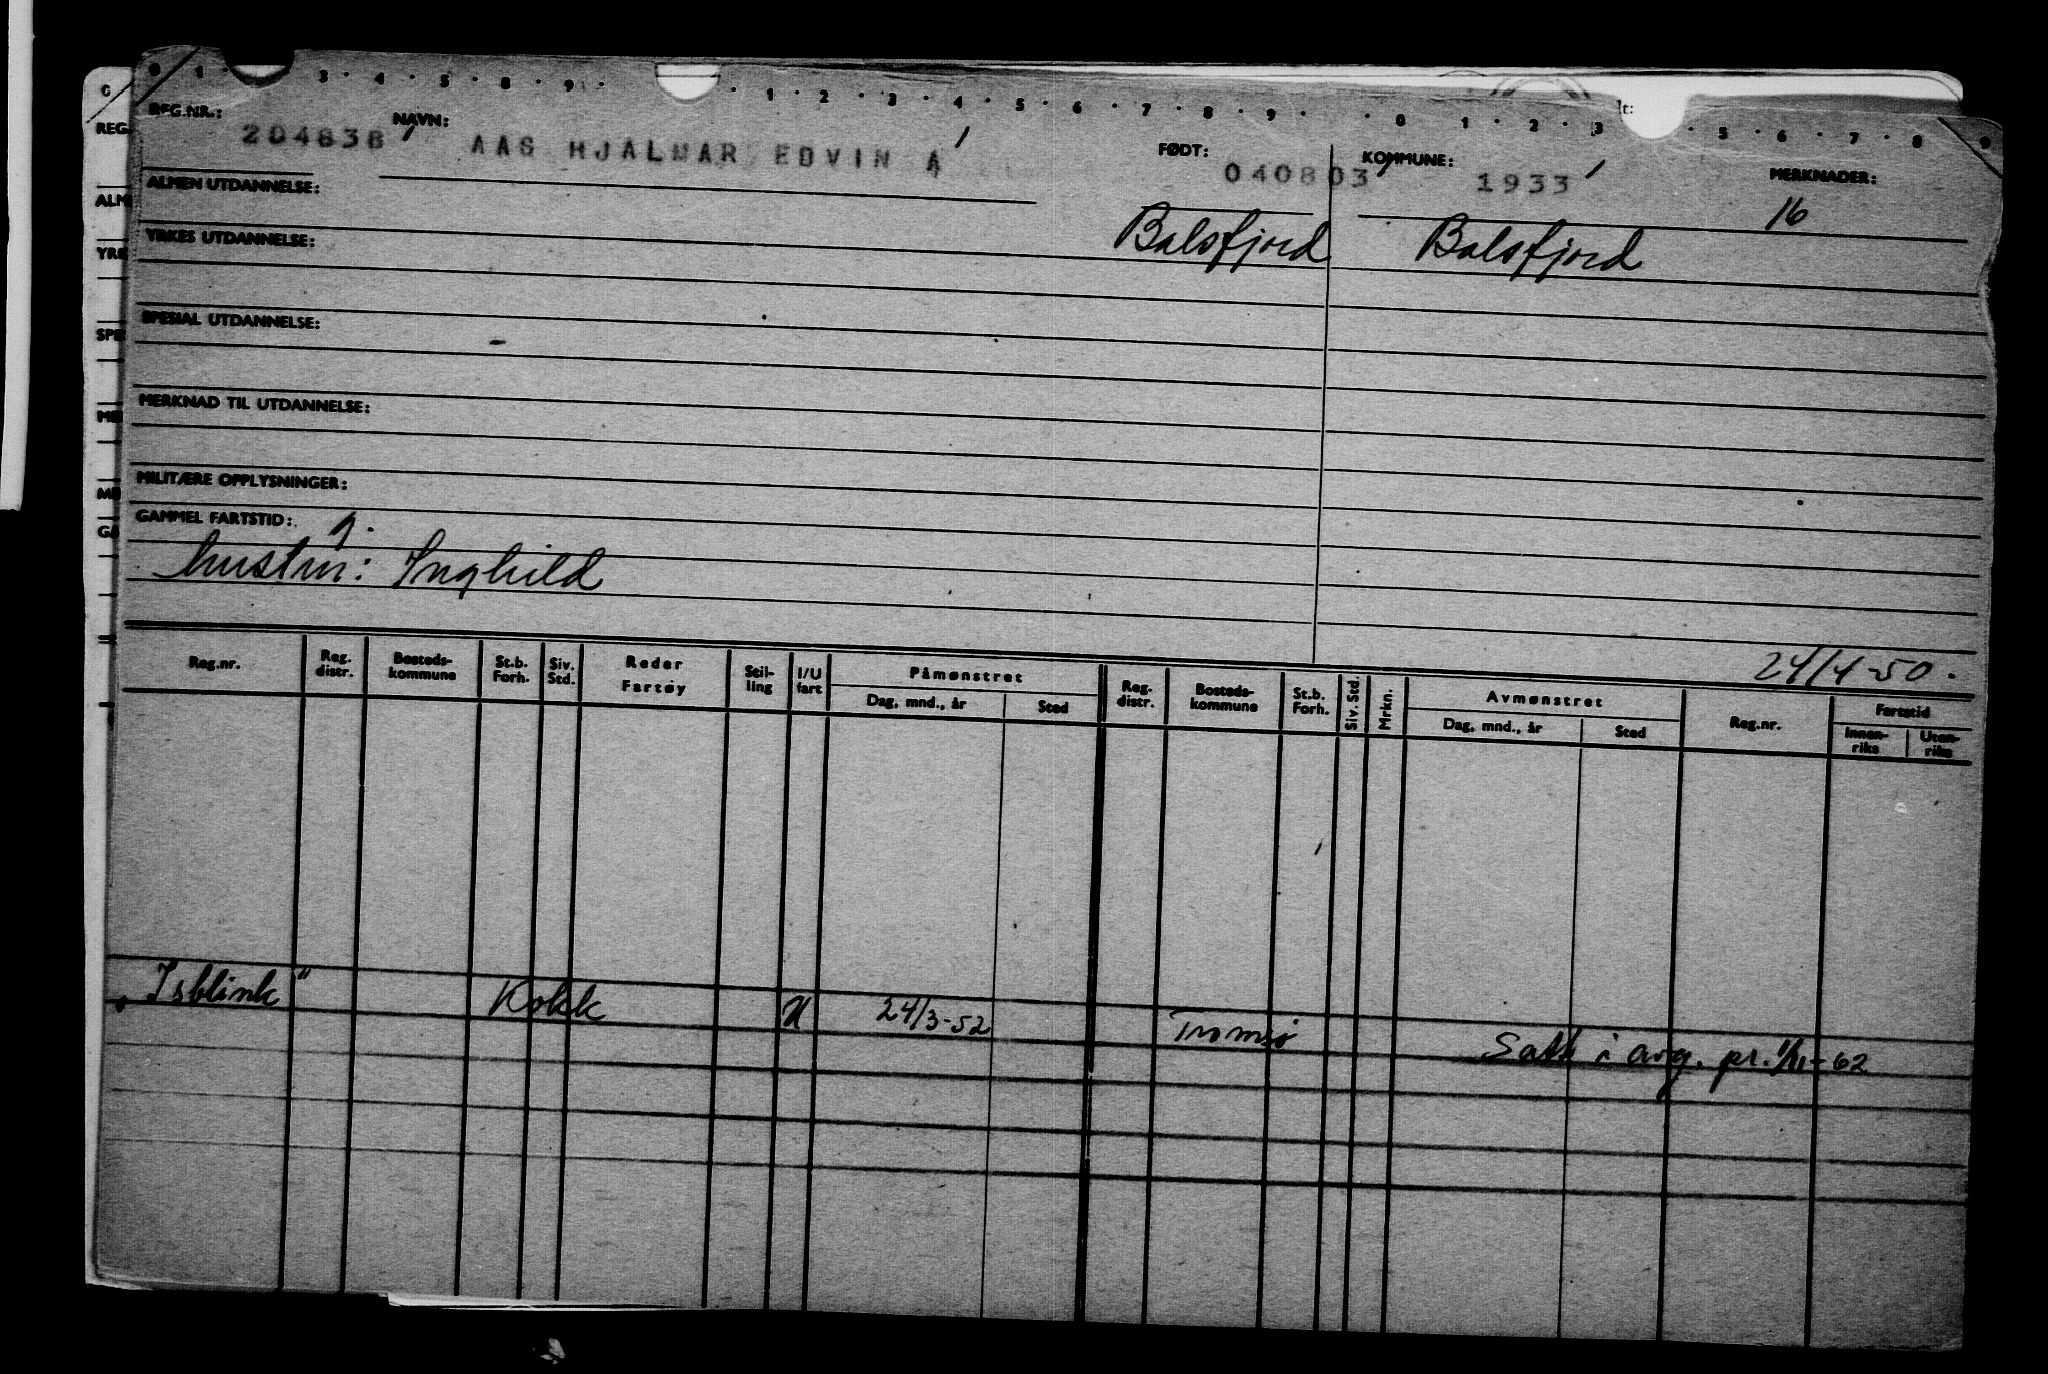 0 1 · 3 · 4 · 5 · 8 · 9 · · 1 · 2 · 3 · 4 · 5 · 6 · 7 · 8 · 9 · · 0 1 · 2 · 3 · 5 · 6 · 7 · 8 9
REG.NR.: 204838 NAVN: AAS HJALMAR EDVIN A FØDT: 040803 KOMMUNE: 1933 MERKNADER:
16
ALMEN UTDANNELSE: Balsfjord Balsfjord
YRKES UTDANNELSE:
SPESIAL UTDANNELSE:
MERKNAD TIL UTDANNELSE:
MILITÆRE OPPLYSNINGER:
GAMMEL FARTSTID:
hustru: Inghild
24/4-50.
Reg.nr. Reg. distr. Bosteds-kommune St.b. Forh. Siv. Std. Reder Fartøy Stil-ling I/U fart Påmønstret Dag, mnd., år Sted Reg. distr. Bosteds-kommune St.b. Forh. Siv. Std. Mrkn. Avmønstret Dag, mnd., år Sted Reg.nr. Fartstid Innen-riks Uten-riks
„Isblink" Kokk U 24/3-52 Tromsø Satt i avg. pr. 1/11-62